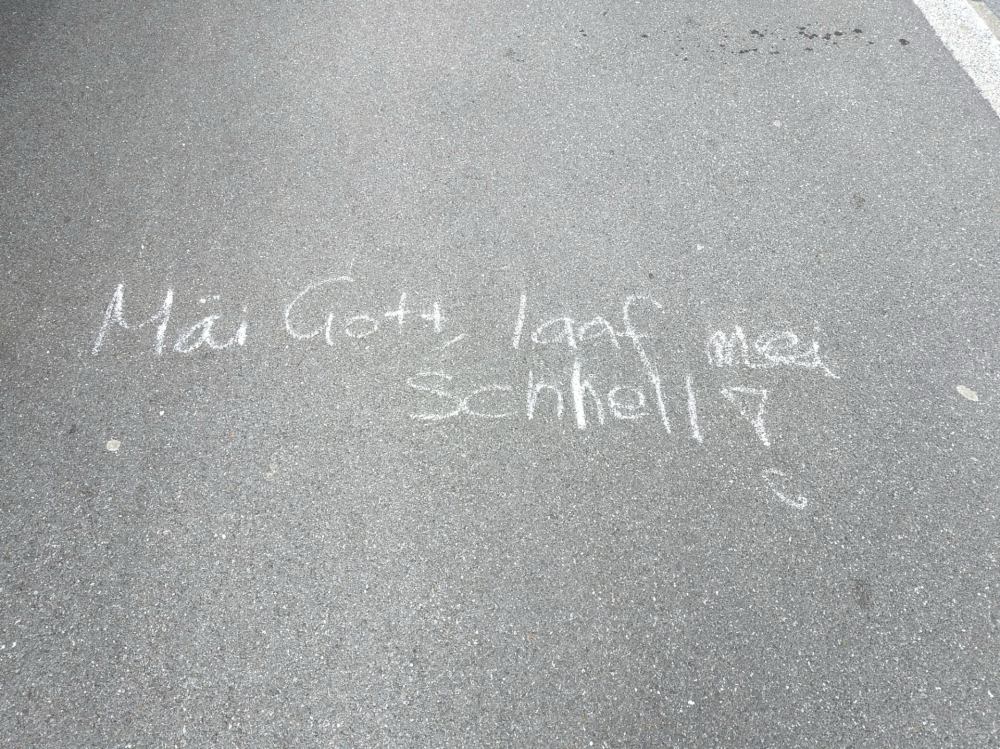 Mäi Gott, laaf mei
Schnell!